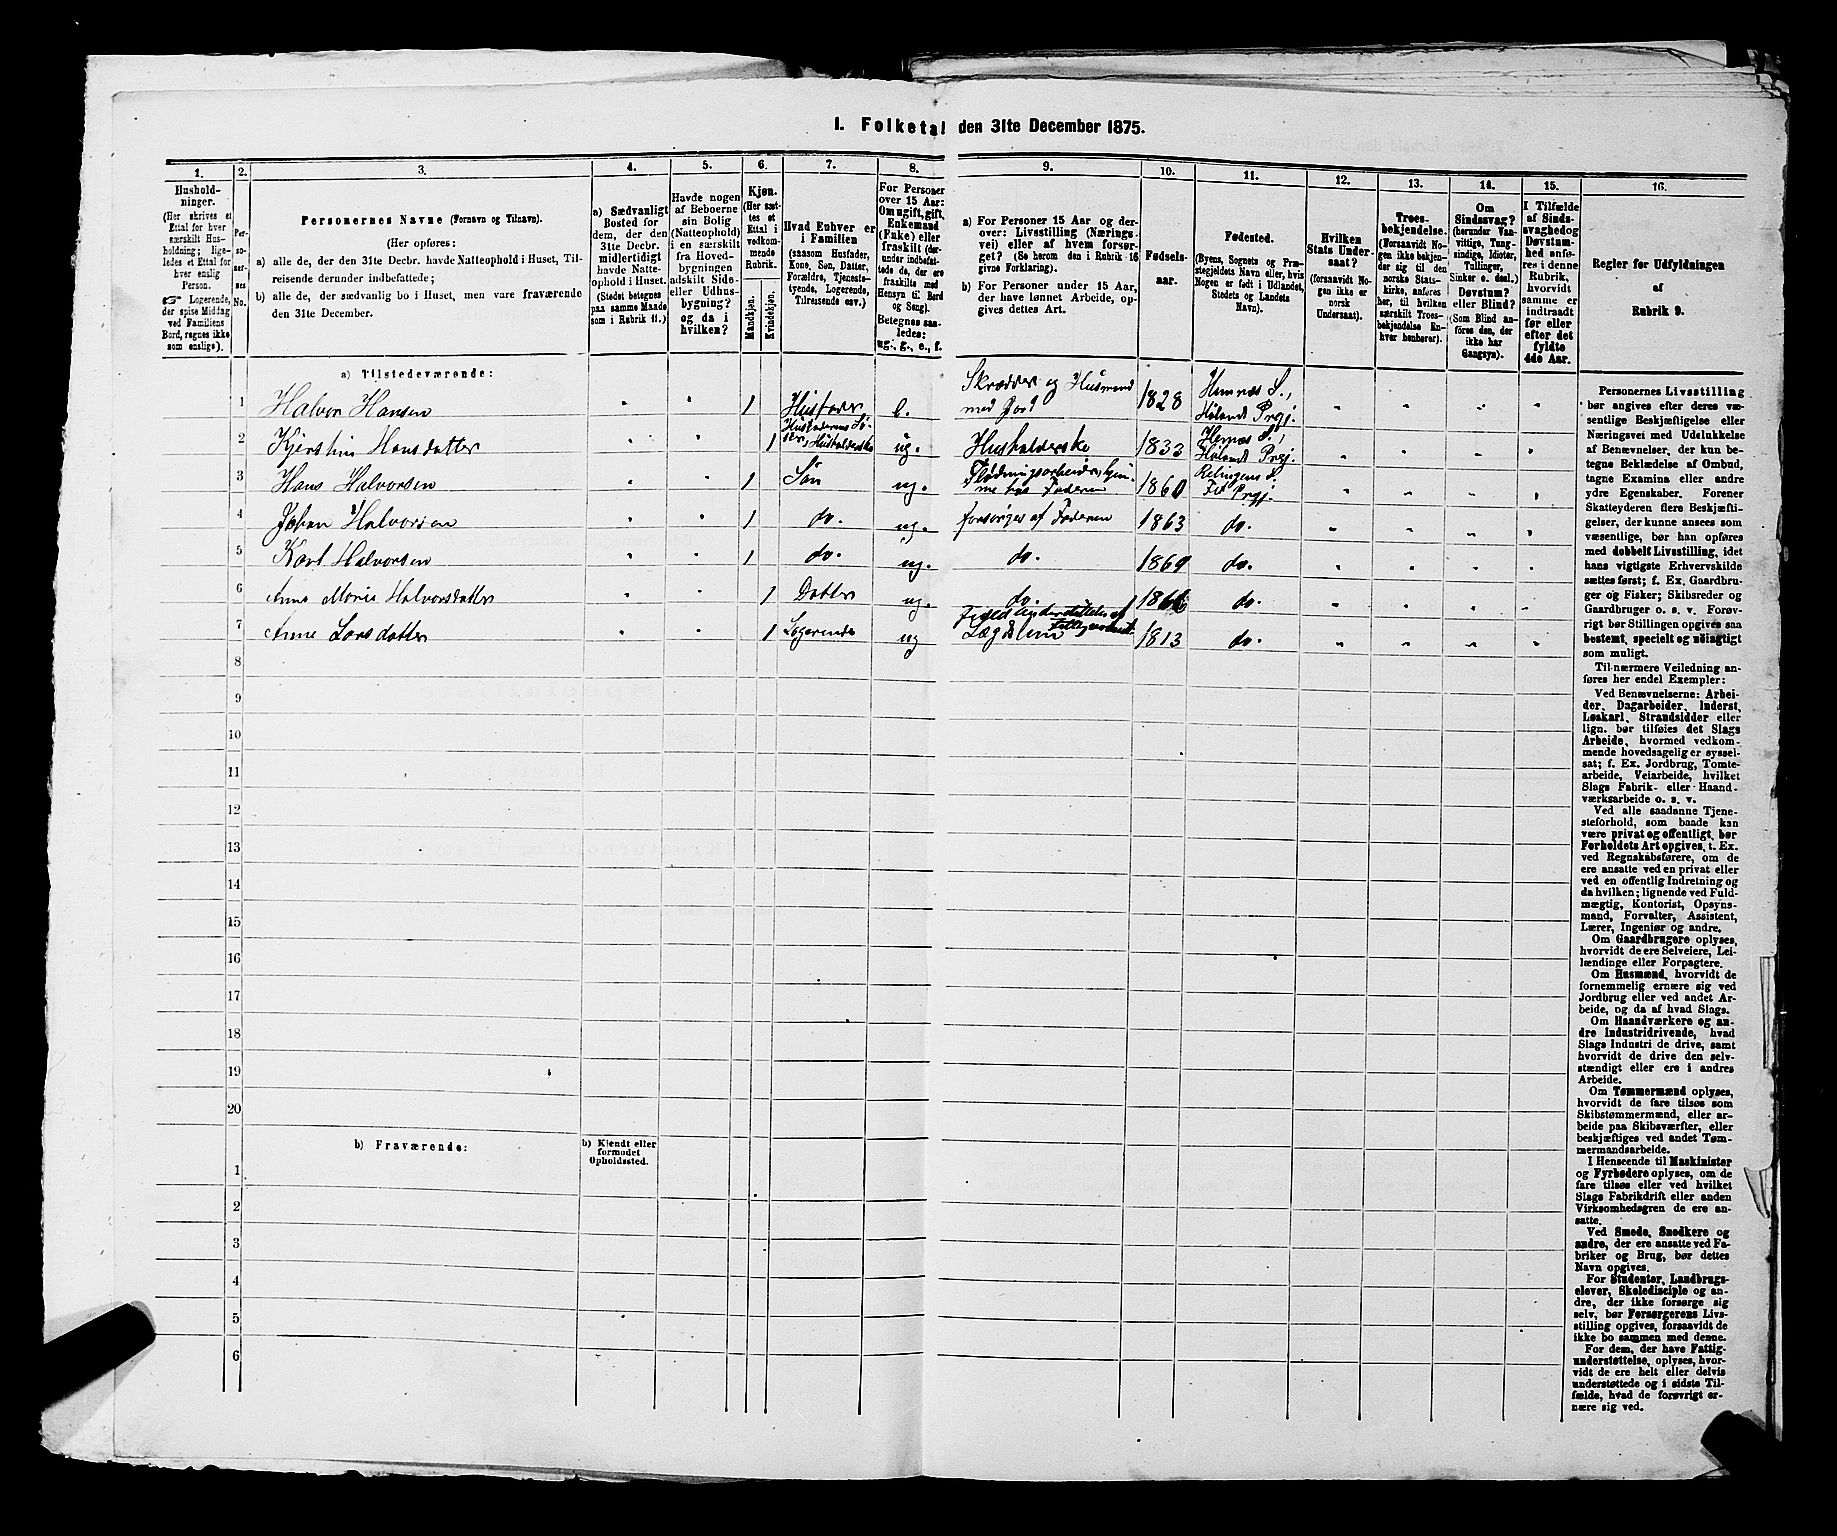 I. Folketal den 31te December 1875.
1. 2. 3. 4. 5. 6. 7. 8. 9. 10. 11. 12. 13. 14. 15. 16.
Hushold-
ninger.
(Her skrives et
Ettal for hver
særskilt Hus-
holdning; lige-
ledes et Ettal for
hver enslig
Person.
☞ Logerende,
der spise Middag
ved Familiens
Bord, regnes ikke
som enslige).
Per-
so-
ner-
nes
No.
Personernes Navne (Fornavn og Tilnavn).
(Her opføres:
a) alle de, der den 31te Decbr. havde Natteophold i Huset, Til-
reisende derunder indbefattede;
b) alle de, der sædvanlig bo i Huset, men vare fraværende
den 31te December.
a) Sædvanligt
Bosted for
dem, der den
31te Decbr.
midlertidigt
havde Natte-
ophold i Huset.
(Stedet betegnes
paa samme Maade
som i Rubrik 11.)
Havde nogen
af Beboerne
sin Bolig
(Natteophold)
i en særskilt
fra Hoved-
bygningen
adskilt Side-
eller Udhus-
bygning?
og da i
hvilken?
Kjøn.
(Her sæt-
tes et
Ettal i
vedkom-
mende
Rubrik.
Mandkjøn.
Kvindekjøn.
Hvad Enhver er
i Familien
(saasom Husfader,
Kone, Søn, Datter,
Forældre, Tjeneste-
tyende, Logerende,
Tilreisende osv.)
For
Personer
over 15 Aar:
Om ugift, gift,
Enkemand
(Enke) eller
fraskilt (der-
under indbefat-
tede de, der ere
fraskilte med
Hensyn til Bord
og Seng).
Betegnes saa-
ledes:
ug., g., e., f.
a) For Personer 15 Aar og der-
over: Livsstilling (Nærings-
vei) eller af hvem forsør-
get? (Se herom den i Rubrik 16
givne Forklaring).
b) For Personer under 15 Aar,
der have lønnet Arbeide, op-
gives dettes Art.
Fødsels-
aar.
Fødested.
(Byens, Sognets og Præ-
stegjeldets Navn eller, hvis
Nogen er født i Udlandet,
Stedets og Landets
Navn).
Hvilken
Stats Under-
saat?
(forsaavidt No-
gen ikke er
norsk
Undersaat).
Troes-
bekjendelse.
(Forsaavidt No-
gen ikke bekjen-
der sig til den
norske Stats-
kirke, anføres
her, til hvilken
særskilt Troes-
bekjendelse En-
hver henhører).
Om
Sindssvag?
(herunder Van-
vittige, Tung-
sindige, Idioter,
Tullinger,
Sinker o. desl.)
Døvstum?
eller Blind?
(Som Blind an-
føres den, der
ikke har
Gangsyn).
I Tilfælde
af Sinds-
svaghed og
Døvstum-
hed anfø-
res i denne
Rubrik,
hvorvidt
samme er
indtraadt
før eller
efter det
fyldte
4de Aar.
Regler for Udfyldningen
af
Rubrik 9.
a) Tilstedeværende:
1 Halvor Hansen 1 Husfader, e. Skrædder og Husmand med Jord 1828 Hemnæs S., Hølands Prgj.
2 Kjerstin Hansdatter 1 Husfaderens Sø- ster, Husholderske ug. Husholderske 1833 Hemnæs S., Hølands Prgj.
3 Hans Halvorsen 1 Søn ug. Flødningsarbeider, hjem- me hos Faderen 1860 Relingens S. Fet Prgj.
4 Johan Halvorsen 1 do. ug. forsørges af Faderen 1863 do.
5 Karl Halvorsen 1 do. ug. do. 1869 do.
6 Anne Marie Halvorsdatter 1 Datter ug. do. do.
7 Anne Larsdatter 1 Logerende ug Lægdslem 1813 do.
8
9
10
11
12
13
14
15
16
17
18
19
20
b) Fraværende:
b) Kjendt eller
formodet
Opholdssted.
1
2
3
4
5
6
Personernes Livsstilling
bør angives efter deres væ-
sentlige Beskjæftigelse eller
Næringsvei med Udelukkelse
af Benævnelser, der kun be-
tegne Beklædelse af Ombud,
tagne Examina eller andre
ydre Egenskaber. Forener
Skatteyderen flere Beskjæfti-
gelser, der kunne ansees som
væsentlige, bør han opføres
med dobbelt Livsstilling, idet
hans vigtigste Erhvervskilde
sættes først; f. Ex. Gaardbru-
ger og Fisker; Skibsreder og
Gaardbruger o. s. v. Forøv-
rigt bør Stillingen opgives saa
bestemt, specielt og nøiagtigt
som muligt.
Til nærmere Veiledning an-
føres her endel Exempler:
Ved Benævnelserne: Arbei-
der, Dagarbeider, Inderst,
Løskarl, Strandsidder eller
lign. bør tilføies det Slags
Arbeide, hvormed vedkom-
mende hovedsagelig er syssel-
sat; f. Ex. Jordbrug, Tomte-
arbeide, Veiarbeide, hvilket
Slags Fabrik- eller Haand-
værksarbeide o. s. v.
Ved alle saadanne Tjene-
steforhold, som baade kan
være privat og offentligt, bør
Forholdets Art opgives, t. Ex.
ved Regnskabsførere, om de
ere ansatte ved en privat eller
ved en offentlig Indretning og
da hvilken; lignende ved Fuld-
mægtig, Kontorist, Opsyns-
mand, Forvalter, Assistent,
Lærer, Ingeniør og andre.
Om Gaardbrugere oplyses,
hvorvidt de ere Selveiere, Lei-
lændinge eller Forpagtere.
Om Husmænd, hvorvidt de
fornemmelig ernære sig ved
Jordbrug eller ved andet Ar-
beide, og da af hvad Slags.
Om Haandværkere og an-
dre Industridrivende, hvad
Slags Industri de drive, samt
hvorvidt de drive den selv-
stændigt eller ere i andres
Arbeide.
Om Tømmermænd oplyses,
hvorvidt de fare tilsøs som
Skibstømmermænd, eller ar-
beide paa Skibsværfter, eller
beskjæftiges ved andet Tøm-
mermandsarbeide.
I Henseende til Maskinister
og Fyrbødere oplyses, om de
fare tilsøs eller ved hvilket
Slags Fabrikdrift eller anden
Virksomhedsgren de ere an-
satte.
Ved Smede, Snedkere og
andre, der ere ansatte ved Fa-
briker og Brug, bør dettes
Navn opgives.
For Studenter, Landbrugs-
elever, Skoledisciple og an-
dre, der ikke forsørge sig
selv, bør Forsørgerens Livs-
stilling opgives, forsaavidt de
ikke bo sammen med denne.
For dem, der have Fattig-
understøttelse, oplyses, hvor-
vidt de ere helt eller delvis
understøttede og i sidste Til-
fælde, hvad de forøvrigt er-
nære sig ved.